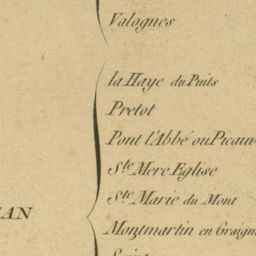 Valognes
la Haye du Puits
Pretot
Pont l'Abbé ou Picauv
Ste Mere Eglise
Ste Marie du Mont
IAN
Montmartin en Graign